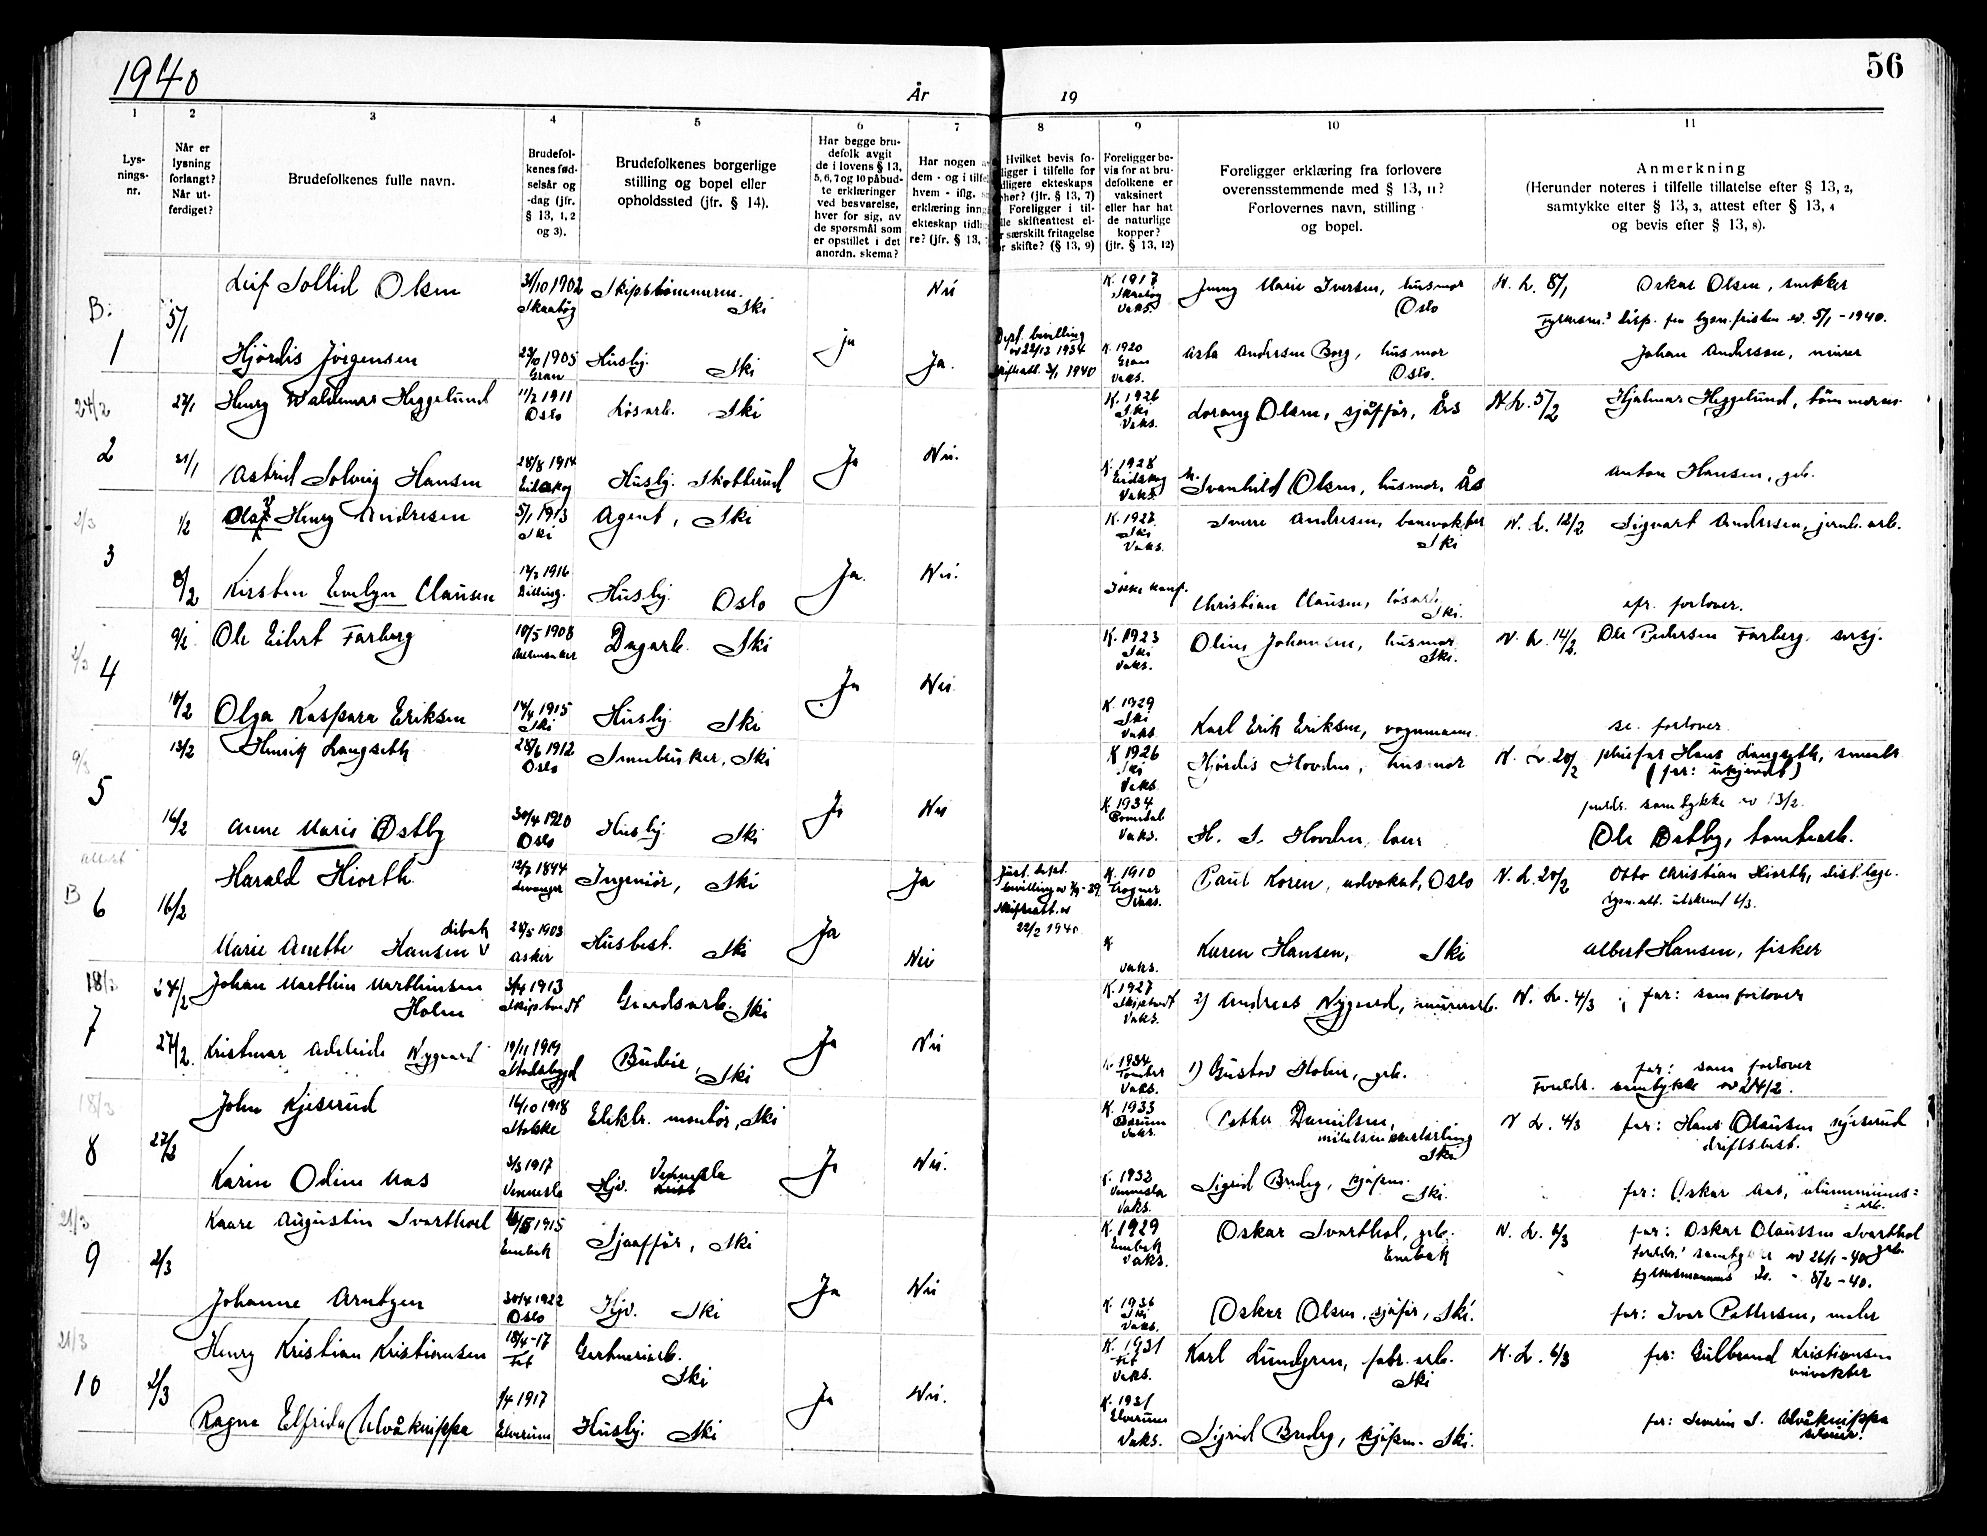 1940
56
År
19
1 2 3 4 5 6 7 8 9 10 11
Lys-
nings-
nr.
Når er
lysning
forlangt?
Når ut-
ferdiget?
Brudefolkenes fulle navn.
Brudefol-
kenes fød-
selsår og
-dag (jfr.
§ 13, 1, 2
og 3).
Brudefolkenes borgerlige
stilling og bopel eller
opholdssted (jfr. § 14).
Har begge bru-
defolk avgit
de i lovens § 13,
5, 6, 7 og 10 påbud-
te erklæringer
ved besvarelse,
hver for sig, av
de spørsmål som
er opstillet i det
anordn. skema?
Har nogen
dem - og i tilfe
hvem - iflg.
erklæring inng
ekteskap tidl
re? (jfr. § 13,
Hvilket bevis fo-
ligger i tilfelle for
dligere ekteskaps
hør? (jfr. § 13, 7)
Foreligger i til-
lle skifteattest el-
r særskilt fritagelse
r skifte? (§ 13, 9)
Foreligger be-
vis for at bru-
defolkene er
vaksinert
eller har hat
de naturlige
kopper?
(jfr. § 13, 12)
Foreligger erklæring fra forlovere
overensstemmende med § 13, 11?
Forlovernes navn, stilling
og bopel.
Anmerkning
(Herunder noteres i tilfelle tillatelse efter § 13, 2,
samtykke efter § 13, 3, attest efter § 13, 4
og bevis efter § 13, 8).
B: 1 5/1 Leif Sollid Olsen 31/10 1902 Ski Nei K. 1917 Vaks. Jenny Marie Iversen, husmor Oslo N. L. 8/1 Oskar Olsen, snekker
5/1 - 1940.
Hjördis Jörgensen 1905 Gran Husbj. Ski ja Ja. Dept. bevilling 22/12 1934 3/1 1940 K. 1920 Gran Vaks. Asta Andersen Borg, husmor Oslo. Johan Andersen, murer
24/2 2 27/1 Henry Waldemar Heggelund 11/2 1911 Oslo Løsarb. Ski K. 1926 Ski Vaks. Olsen, sjåffør, Ås N. L. 5/2 Hjalmar Heggelund,
Astrid Solveig Hansen 28/8 1914 Eidskog Husbj. Skotterud Ja Nei. K. 1928 Eidskog Vaks. Svanhild Olsen, husmor, Ås Anton Hansen, grb.
2/3 3 1/2 Olaf Henry Andresen 5/1 1913 Ski Agent, Ski K. 1927 Ski Vaks. Sverre Andresen, banevokter Ski N. L. 12/2 Sigvart Andresen, jernb. arb.
8/2 Kirsten Evelyn Clausen 1916 Husbj. Oslo Ja. Nei. Ikke konf. Christian Clausen, løsarb. Ski. efr. forlover.
2/3 4 9/2 Ole Eilert Farberg 10/5 1908 Dagarb. Ski K. 1923 Ski Vaks. Oline Johansen, husmor Ski. N. L. 14/2. Ole Pedersen Farberg,
10/2 Olga Kaspara Eriksen 1915 Ski Husbj. Ski Ja Nei K. 1929 Ski Vaks Karl Erik Eriksen, vognmann. se. forlover
9/3 5 13/2 Henrik Langseth 28/6 1912 Oslo Ski K 1926 Ski Vaks. Hjördis Hovden, husmor N. L. 20/2 pleiefar Hans Langseth,
(far: ukjendt)
samtykke 13/2.
16/2 Anne Marie Østby 30/4 1920 Oslo Husbj Ski Ja Nei K. 1934 Vaks. H. S. Hovden, Ole Østby, tomtearb.
B 6 16/2 Harald Hiorth Ingeniör, Ski Ja K. 1910 Vaks. Paul Koren, advokat, Oslo N. L. 20/2 Otto Christian Hiorth, dist.lege.
22/2 1940
Marie Anette Hansen 28/5 1903 Asker Husbest. Ski Ja Nei K vaks. Karen Hansen, Ski Albert Hansen, fisker
18/3 7 24/2 Johan Marthin Marthinsen
Holm 1913 Skiptvedt Gaardsarb. Ski K. 1927 Skiptvedt Vaks. 2) Andreas Nygaard, murerarb. N. L. 4/3 far: som forlover
27/2. Kristmar Adelheide Nygaard 19/11 1919 Stadsbygd Budeie, Ski Ja Nei K. 1934 Vaks. 1) Gustav Holm, grb. far: som forlover
Foreldr. samtykke 24/2.
18/3 8 27/2 John Kjeserud 16/10 1918 Elektr. montör, Ski K. 1933 Bærum Vaks. Petter Danielsen, Ski N L. 4/3 far: Hans Olausen Kjeserud
driftsbest.
Karin Odine Aas 3/3 1917 Vennesla Hjv. Vennesla Ja Nei. K. 1932 Vennesla Vaks. Sigrid Bredeg, kjøpm. Ski. far: Oskar Aas, aluminiums=
= arb.
21/3 9 2/3 Kaare Augustin Svarthol 1915 Enebak Sjaafför, Ski K. 1929 Enebak Vaks. Oskar Svarthol, grb. Enebak N. L. 6/3 far: Oskar Olaussen Svarthol
grb.
26/1 - 40
fylkesmannens do. - 8/2 - 40.
Johanne Arntzen 30/4 1922 Oslo Hjv. Ski Ja Nei K. 1936 Ski Vaks. Oskar Olsen, sjåfør, Ski. far: Iver Pettersen, maler
21/3 10 2/3 Henry Kristian Kristiansen 18/4-17 Fet Gartneriarb. Ski K. 1931 Fet Vaks. Karl Lundgren, fabr. arb. Ski N. L. 6/3 far: Gulbrand Kristiansen
Ragna Elfrida Ulvåknippa 1/4 1917 Elverum Husbj. Ski Ja Nei. K. 1931 Elverum Vaks. Sigrid Bredeg, kjøpm. Ski. far: Severin S. Ulvåknippa